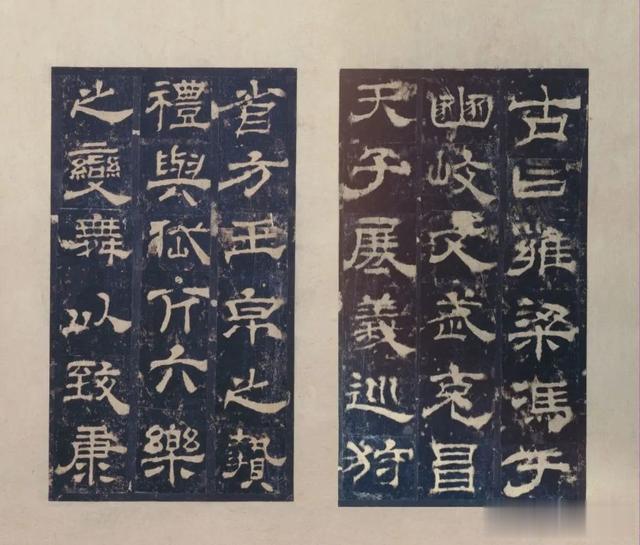 古曰雍梁馮于
豳岐文武克昌
天子展義巡狩
省方玉帛之贄
禮與岱亢六樂
之變舞以致康